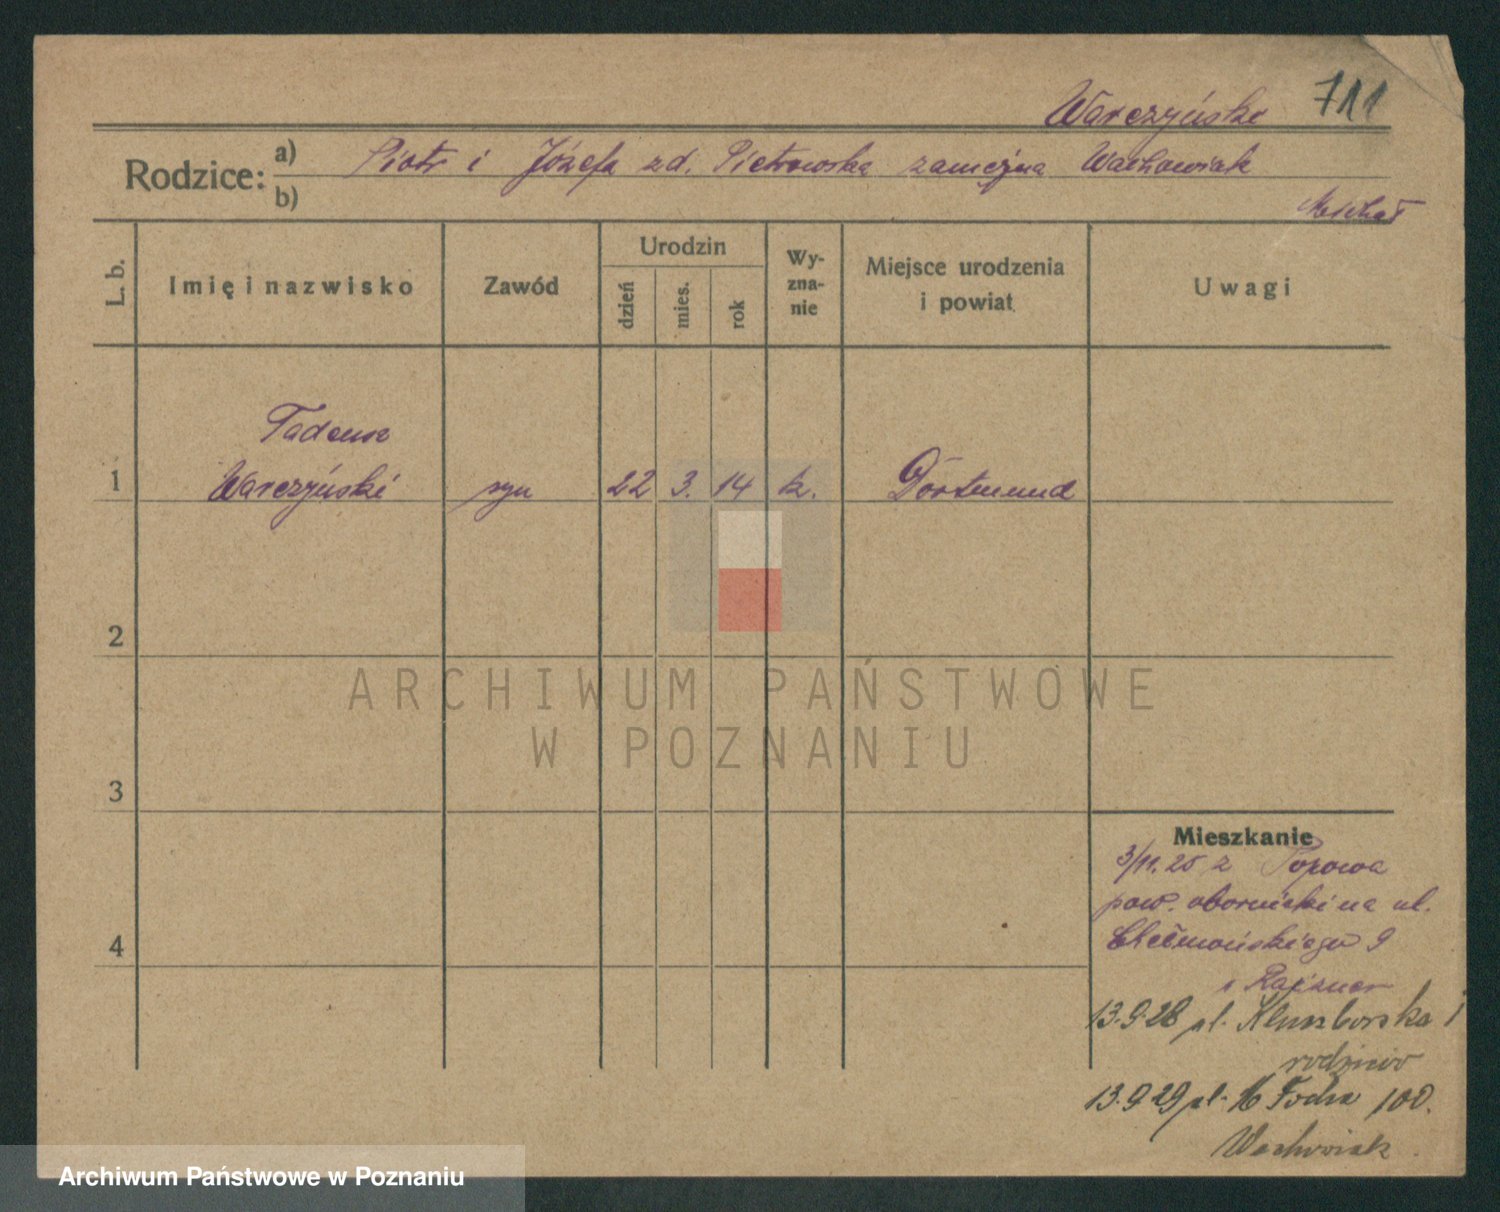 711
Warczyński
Rodzice: a) Piotr i Józefa zd. Pietrowska zamężna Wachowiak
b) Michał
L. b.
Imię i nazwisko
Zawód
Urodzin
dzień
mies.
rok
Wy-
zna-
nie
Miejsce urodzenia
i powiat
Uwagi
Tadeusz
1 Warczyński syn 22 3. 14 k. Dortmund
2
3
4
Mieszkanie
3/11.25 z Popowa
pow. obornicki na ul.
Chełmońskiego 9
13.9.28 ul. Kluczborska
rodziców
13.9.29 ul. M Focha 100.
Wachowiak
ARCHIWUM PAŃSTWOWE
W POZNANIU
Archiwum Państwowe w Poznaniu